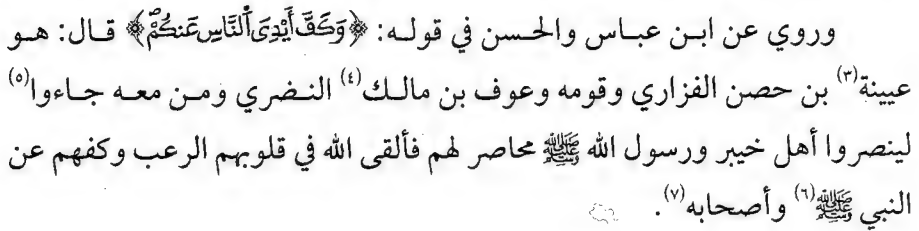 وروي عن ابـن عبـاس والحـسن في قولـه: ﴿وَكَفَّ أَيْدِيَ ٱلنَّاسِ عَنكُمْ﴾ قـال: هـو
عيينة(٣) بن حصن الفزاري وقومه وعوف بن مالـك(٤) النـضري ومـن معـه جـاءوا(٥)
لينصروا أهل خيبر ورسول الله ﷺ محاصر لهم فألقى الله في قلوبهم الرعب وكفهم عن
النبي ﷺ(٦) وأصحابه(٧).